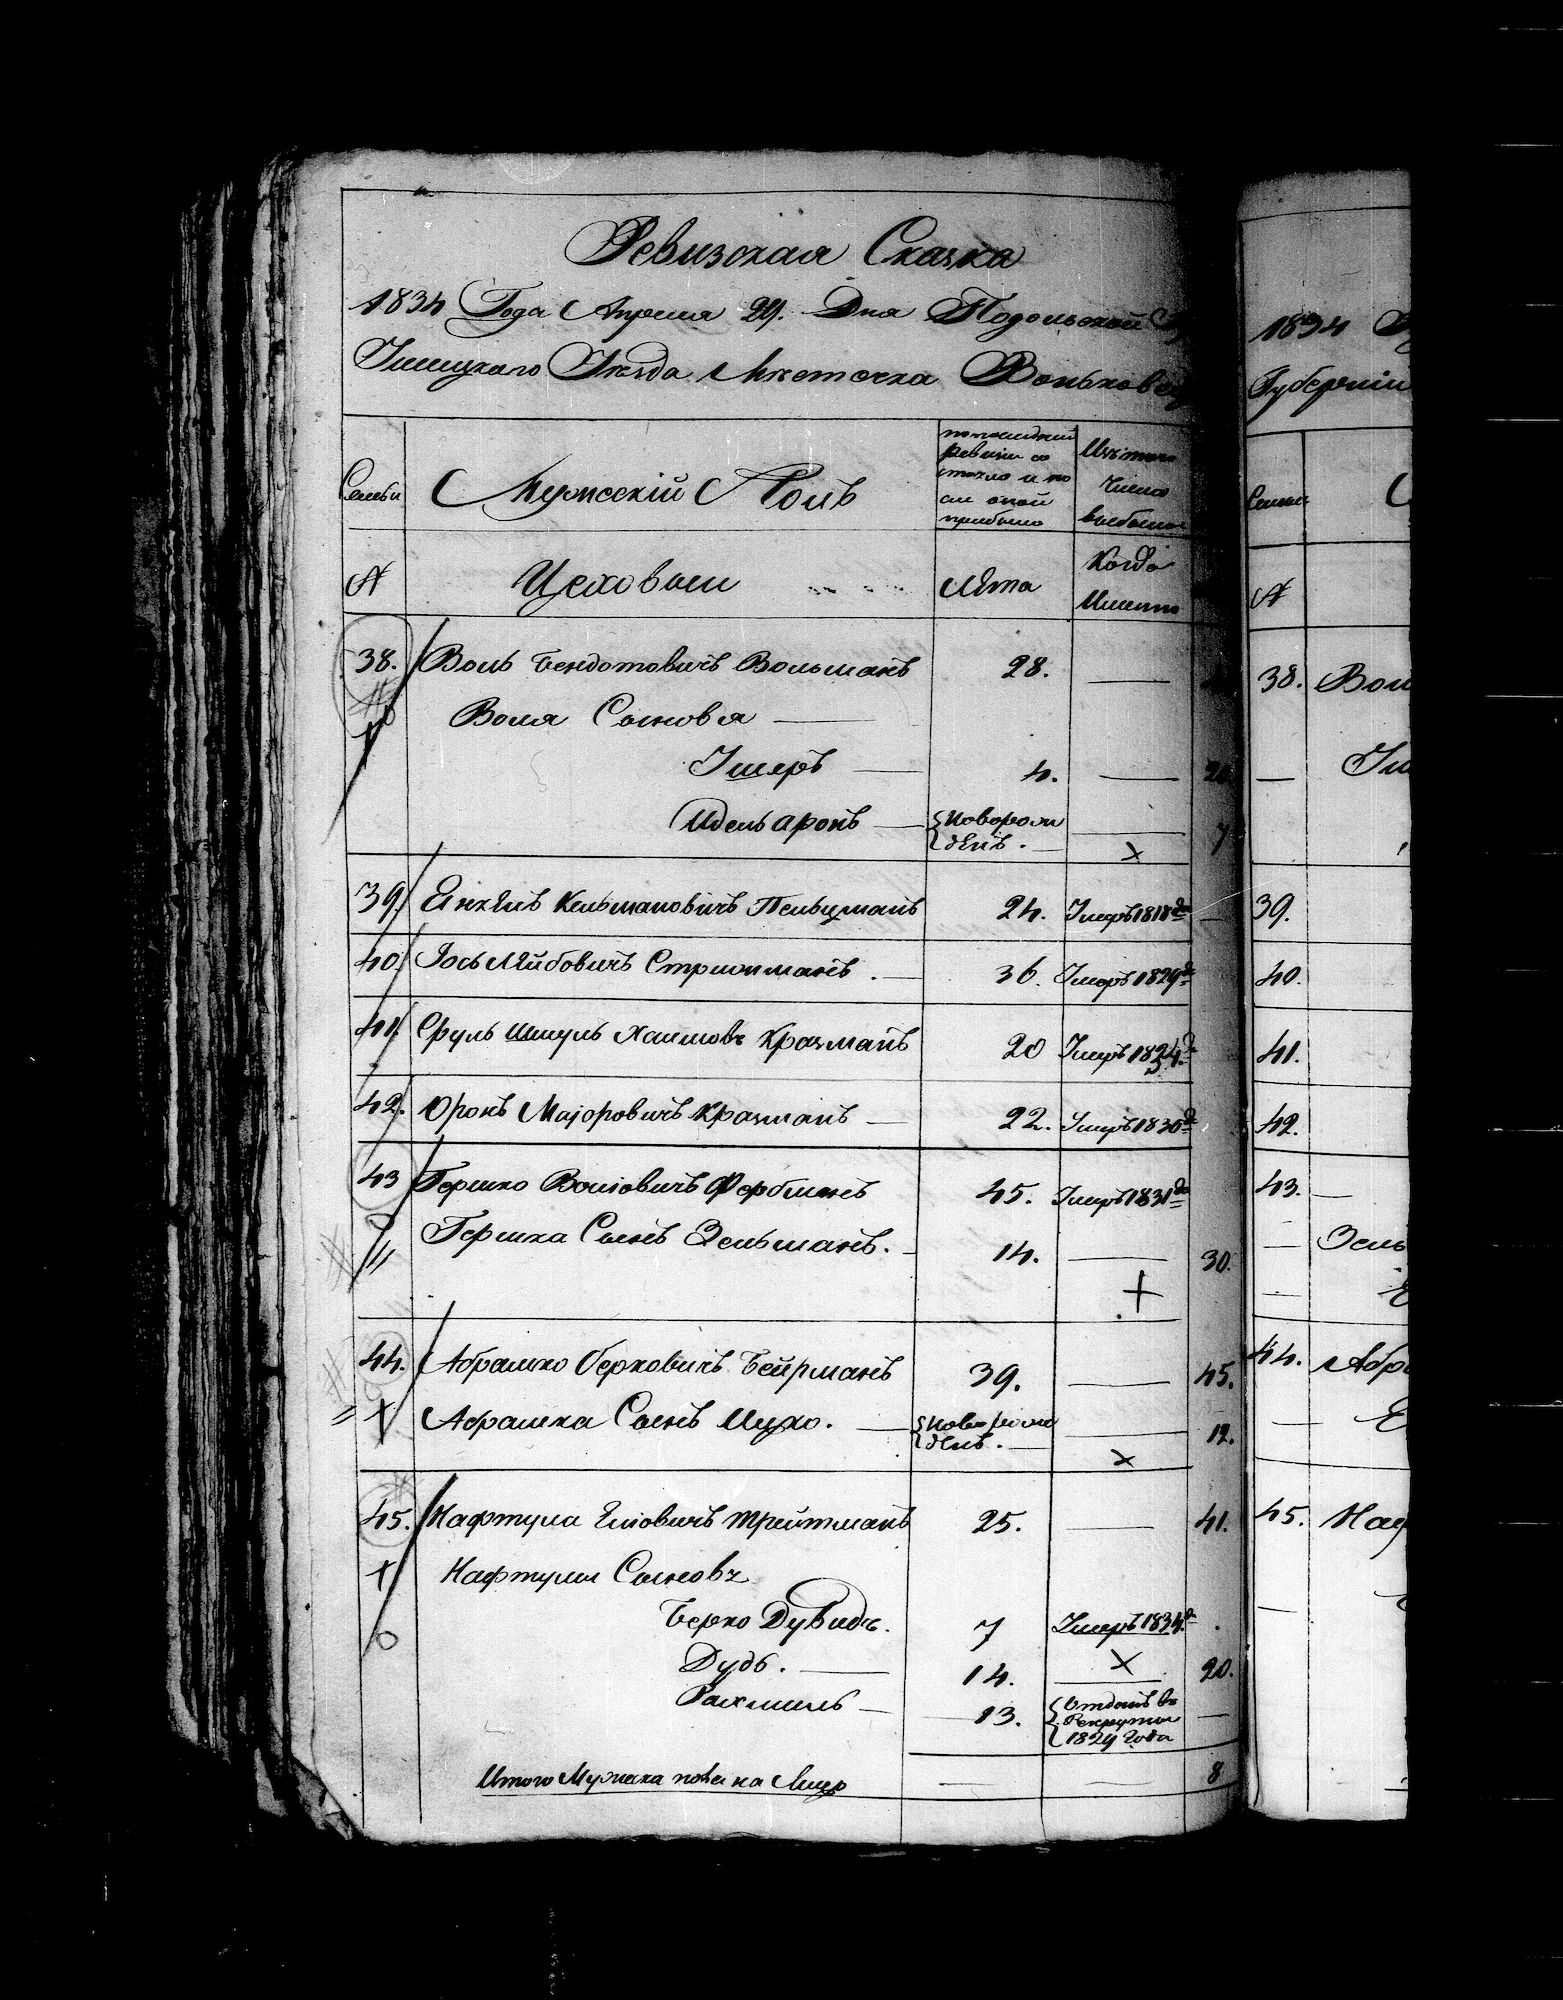 Ревизская Сказка
1834 Года Апреля 29. Дня Подольской
Ушицкаго Уѣзда Мѣстечка Воньковец
Семьи
Мужескій Полъ
по последней
ревизіи со
стояло и по
сли оной
прибыло
Изъ того
числа
выбыло
№
Цеховыи
Лѣта
Когда
Имянно
38. Воль Бендотовичъ Вольманъ 28. —
Воля Сыновья —
Ушеръ — 4. — 20.
Идель Аронъ — новорож
денъ. — × 7
39. Янкѣль Кельмановичъ Пельцманъ 24. Умеръ 1818 да —
40. Іось Лѣйбовичъ Стришманъ. — 36. Умеръ 1829 да
41. Сруль Шмуль Хаимовъ Кразманъ 20 Умеръ 1824. да
42. Оронъ Маіоровичъ Кразманъ — 22. Умеръ 1830 да
43 Гершко Волiовичъ Фербманъ 45. Умеръ 1831 да
Гершка Сынъ Зельманъ. — 14. — 30.
+
44. Абрашко Берковичъ Бейрманъ 39. — 45.
Абрашка Сынъ Ицко. — новорож
денъ. — × 12.
45. Нафтула Еліовичъ Тройтманъ 25. — 41.
Нафтулы Сыновъ
Берко Дувидъ. 7 Умеръ 1834. да
Дудь. — 14. × 20.
Рахмиль — 13. Отданъ въ
Рекруты
1829 Года
—
Итого Мужеска пола на Лицо — — 8
1834
Губерніи
Семьи
№
38. Вол
— Уш
39.
40.
41.
42.
43. —
— Зель
—
44. Абра
—
45. Наф
—